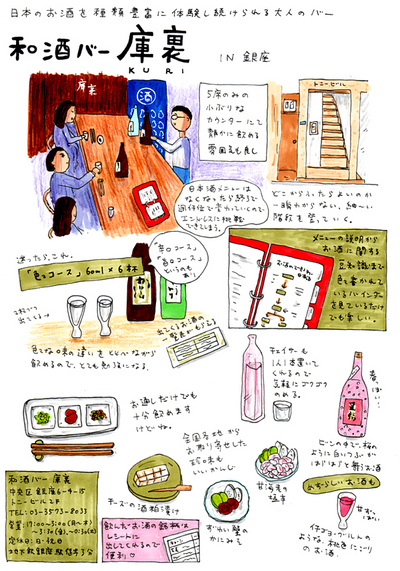 日本のお酒を種類豊富に体験し続けられる大人のバー
和酒バー 庫裏
KURI
IN 銀座
庫裏
酒
5席のみの
小ぶりな
カウンターにて
静かに飲める
雰囲気も良し
トニービル
日本酒メニューは
なくなったら終りで
週何位で変わっていくので
エンドレスに挑戦
できてしまう。
どこから入ったらよいのか
一瞬わからない、細〜い
階段を登っていく。
迷ったら、これ。
「色々コース」60ml×6杯
「辛口コース」
「旨口コース」
というのも
有り
2杯づつ
出てくる→
出てくるお酒の
一覧表がもらえる
色々な味の違いをくらべながら
飲めるので、とても勉強になる。
メニューの説明から
お酒に関する
豆知識まで
色々書かれて
いるバインダー
を見ているだけ
でも楽しい。
お酒のできるまで
お通しだけでも
十分飲めます
けどね。
チェイサーも
1人1本置いて
くれるので
気軽にゴクゴク
のめる。
春っぽい!
ビンの中で、桜の
ように白いつぶが
ぱぱぱっと舞うお酒
全国各地から
お取り寄せした
珍味も
いいかんじ
チーズの酒粕漬け
ずわい蟹の
かにみそ
甘海老の
塩辛
めずらしいお酒も
甘ずっぱい
イチゴヨーグルトの
ような、桃色にごり
のお酒。
飲んだお酒の銘柄は
レシートに
出してくれるので
便利♡
和酒バー 庫裏
中央区銀座6-4-15
トニービル2F
TEL:03-3573-8033
営業:17:00〜3:00(月〜木)
〜3:30(金)、〜0:30(土)
定休日:日・祝日
地下鉄銀座駅徒歩3分